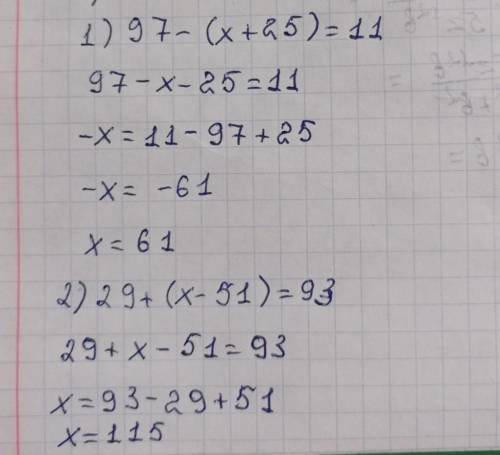 1) 97 - (x + 25) = 11
97 - x - 25 = 11
-x = 11 - 97 + 25
-x = -61
x = 61
2) 29 + (x - 51) = 93
29 + x - 51 = 93
x = 93 - 29 + 51
x = 115